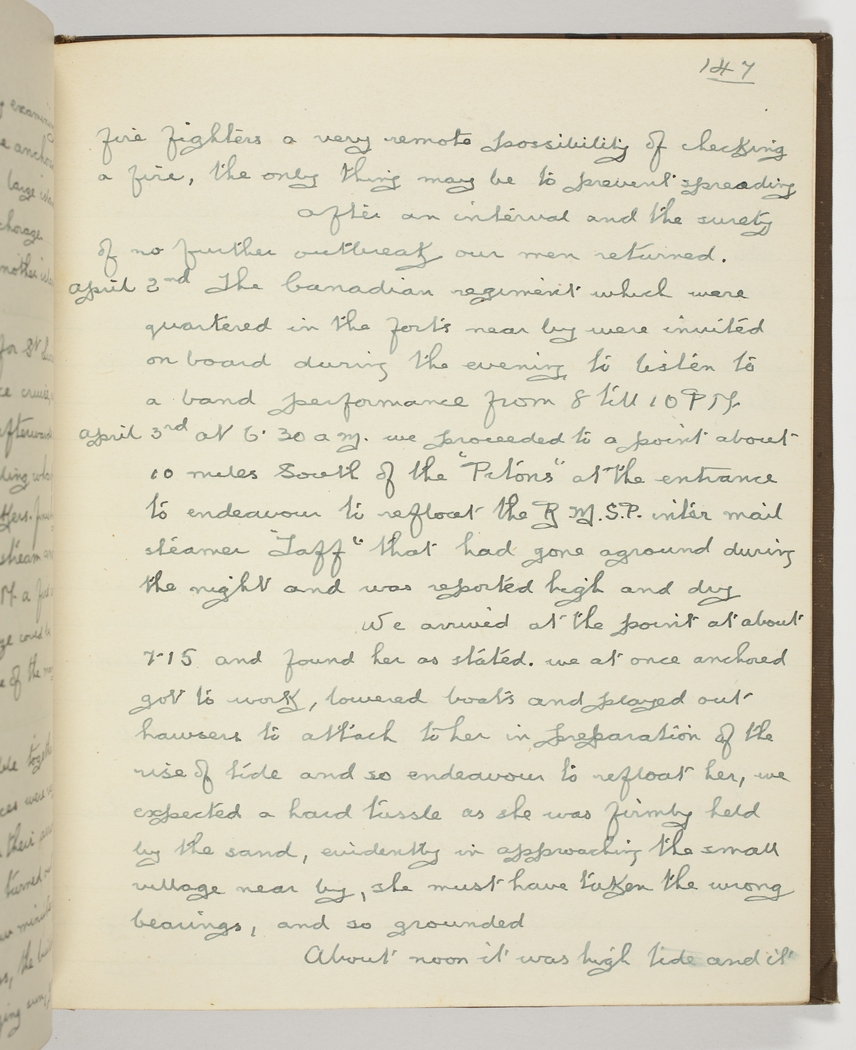 147
fire fighters a very remote possibility of checking
a fire, the only thing may be to prevent spreading
after an interval and the surety
of no further outbreak our men returned.
April 2nd The Canadian regiment which were
quartered in the forts near by were invited
on board during the evening to listen to
a band performance from 8 till 10 PM.
April 3rd at 6.30 a m. we proceeded to a point about
10 miles South of the "Pitons" at the entrance
to endeavour to refloat the R M.S.P. inter mail
steamer "Taff" that had gone aground during
the night and was reported high and dry
We arrived at the point at about
7.15 and found her as stated. we at once anchored
got to work, lowered boats and played out
hawsers to attach to her in preparation of the
rise of tide and so endeavour to refloat her, we
expected a hard tussle as she was firmly held
by the sand, evidently in approaching the small
village near by, she must have taken the wrong
bearings, and so grounded
About noon it was high tide and it